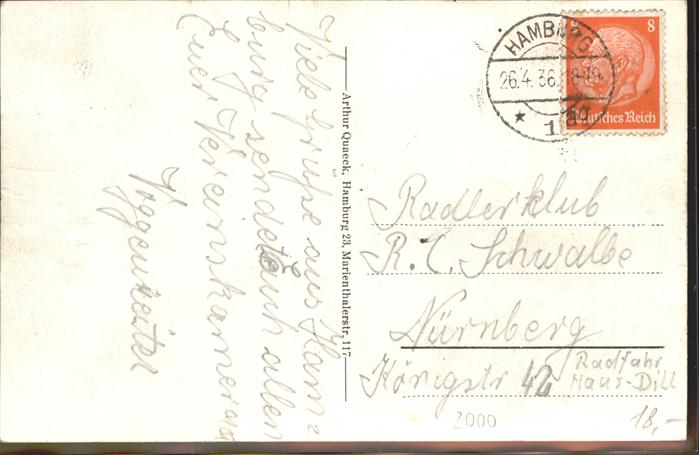 Viele Grüße aus Ham=
burg sendet Euch allen
Euer Vereinskamerad
Arthur Quaeck, Hamburg 23, Marienthalerstr. 117
HAMBURG
26.4.36. 18-19
* 1
8
Deutsches Reich
Radlerklub
R. C. Schwalbe
Nürnberg
Königstr 42
Radfahr
Haus-Dill
2000
18,-